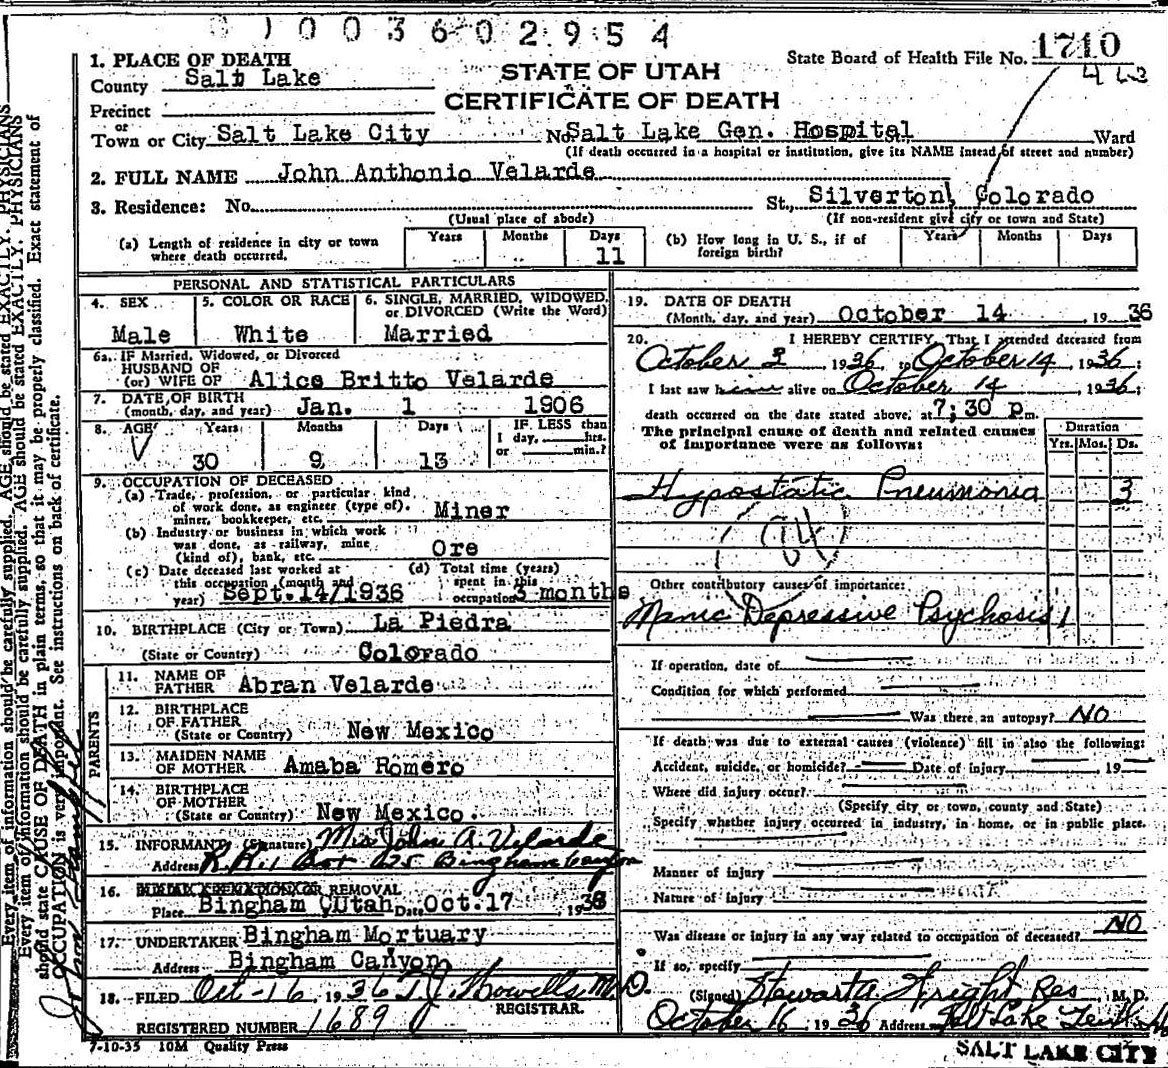 1003602954
1. PLACE OF DEATH
County Salt Lake
STATE OF UTAH
State Board of Health File No. 1710
CERTIFICATE OF DEATH
Precinct
or
Town or City Salt Lake City No. Salt Lake Gen. Hospital Ward
(If death occurred in a hospital or institution, give its NAME instead of street and number)
2. FULL NAME John Anthonio Velarde
3. Residence: No. St., Silverton, Colorado
(Usual place of abode) (If non-resident give city or town and State)
(a) Length of residence in city or town where death occurred. Years Months Days 11
(b) How long in U. S., if of foreign birth? Years Months Days
PERSONAL AND STATISTICAL PARTICULARS
4. SEX 5. COLOR OR RACE 6. SINGLE, MARRIED, WIDOWED, or DIVORCED (Write the Word)
Male White Married
6a. IF Married, Widowed, or Divorced
HUSBAND OF
(or) WIFE OF Alice Britto Velarde
7. DATE OF BIRTH
(month, day, and year) Jan. 1 1906
8. AGE Years Months Days IF LESS than
1 day, hrs.
or min.?
30 9 13
9. OCCUPATION OF DECEASED
(a) Trade, profession, or particular kind
of work done, as engineer (type of),
miner, bookkeeper, etc. Miner
(b) Industry or business in which work
was done, as railway, mine
(kind of), bank, etc. Ore
(c) Date deceased last worked at
this occupation (month and
year) Sept. 14/1936
(d) Total time (years)
spent in this
occupation 3 months
10. BIRTHPLACE (City or Town) La Piedra
(State or Country) Colorado
PARENTS
11. NAME OF
FATHER Abran Velarde
12. BIRTHPLACE
OF FATHER
(State or Country) New Mexico
13. MAIDEN NAME
OF MOTHER Amaba Romero
14. BIRTHPLACE
OF MOTHER
(State or Country) New Mexico.
15. INFORMANT (Signature) Mrs John A. Velarde
Address Bingham Canyon
16. REMOVAL
Place Bingham Utah Date Oct. 17 1936
17. UNDERTAKER Bingham Mortuary
Address Bingham Canyon
18. FILED Oct-16, 1936 T.J. Howells M.D.
REGISTRAR.
REGISTERED NUMBER 1689
7-10-35 10M Quality Press
19. DATE OF DEATH
(Month, day, and year) October 14, 1936
20. I HEREBY CERTIFY, That I attended deceased from
October 3 1936, to October 14, 1936;
I last saw him alive on October 14, 1936;
death occurred on the date stated above, at 7:30 p.m.
The principal cause of death and related causes
of importance were as follows:
Duration
Yrs. Mos. Ds.
Hypostatic Pneumonia 3
Other contributory causes of importance:
Manic Depressive Psychosis 1
If operation, date of
Condition for which performed
Was there an autopsy? NO
If death was due to external causes (violence) fill in also the following:
Accident, suicide, or homicide? Date of injury 19
Where did injury occur?
(Specify city or town, county and State)
Specify whether injury occurred in industry, in home, or in public place.
Manner of injury
Nature of injury
Was disease or injury in any way related to occupation of deceased? NO
If so, specify
(Signed) Stewart A. Wright Res M. D.
October 16, 1936 Address Salt Lake
SALT LAKE CITY
Every item of information should be carefully supplied. AGE should be stated EXACTLY. PHYSICIANS
should state CAUSE OF DEATH in plain terms, so that it may be properly classified. Exact statement of
OCCUPATION is very important. See instructions on back of certificate.